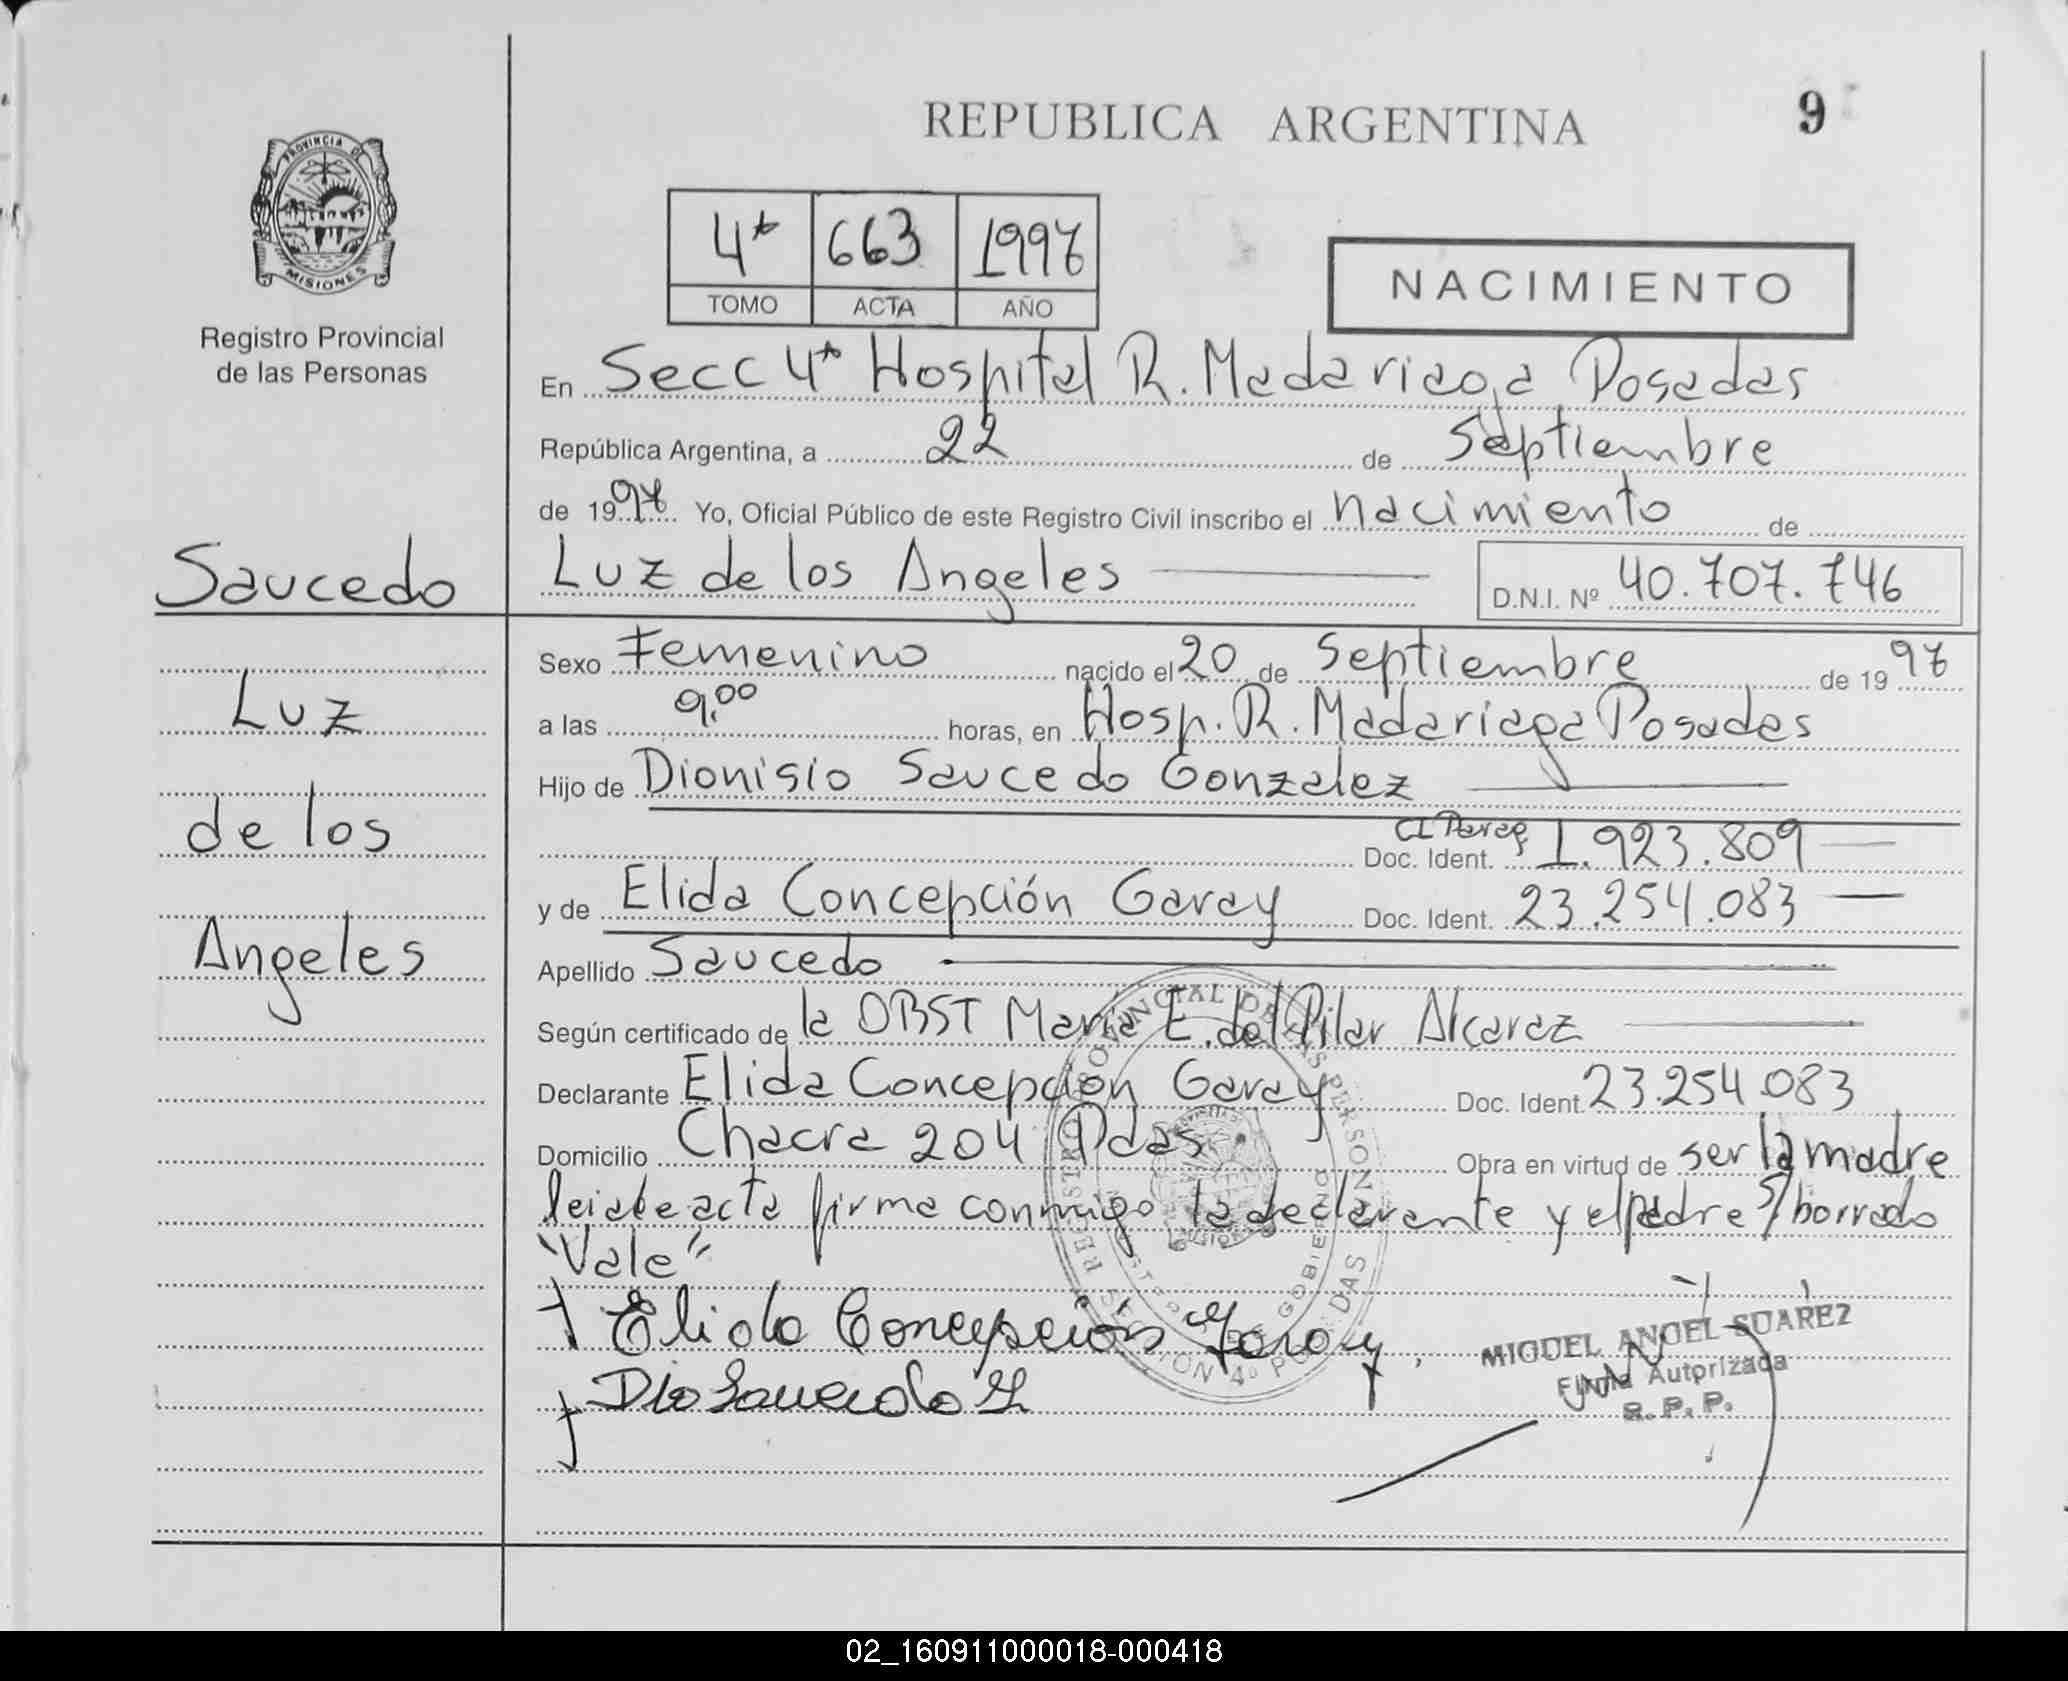 REPUBLICA ARGENTINA
9
PROVINCIA DE
MISIONES
Registro Provincial
de las Personas
4ª 663 1997
TOMO ACTA AÑO
NACIMIENTO
En Secc 4ª Hospital R. Madariaga Posadas
República Argentina, a 22 de Septiembre
de 1997 Yo, Oficial Público de este Registro Civil inscribo el nacimiento de
Saucedo
Luz de los Angeles
D.N.I. Nº 40.707.746
Luz
de los
Angeles
Sexo Femenino nacido el 20 de Septiembre de 1997
a las 9,00 horas, en Hosp. R. Madariaga Posadas
Hijo de Dionisio Saucedo Gonzalez
Doc. Ident. CI Parag 1.923.809
y de Elida Concepción Garay Doc. Ident. 23.254.083
Apellido Saucedo
Según certificado de la OBST María E. del Pilar Alcaraz
Declarante Elida Concepción Garay Doc. Ident. 23.254.083
Domicilio Chacra 204 Pdas Obra en virtud de ser la madre
leida el acta firma conmigo la declarante y el padre S/borrado
"Vale"
Elida Concepción Garay
Dio Saucedo G
REGISTRO PROVINCIAL DE LAS PERSONAS
SECCION 4ª POSADAS
MIGUEL ANGEL SUAREZ
Firma Autorizada
R.P.P.
02_160911000018-000418